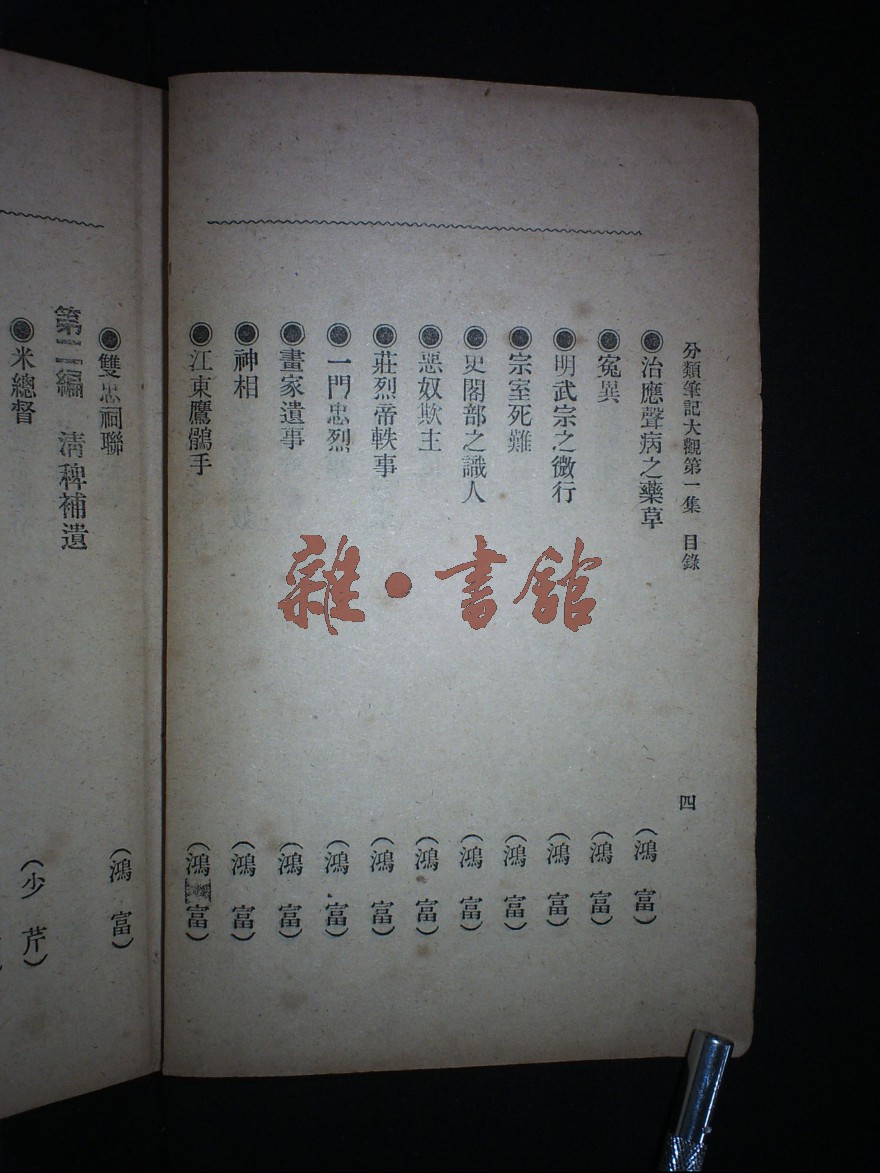 分類筆記大觀第一集　目錄　四
◉治應聲病之藥草　（鴻富）
◉冤異　（鴻富）
◉明武宗之微行　（鴻富）
◉宗室死難　（鴻富）
◉史閣部之識人　（鴻富）
◉惡奴欺主　（鴻富）
◉莊烈帝軼事　（鴻富）
◉一門忠烈　（鴻富）
◉畫家遺事　（鴻富）
◉神相　（鴻富）
◉江東鷹鶻手　（鴻富）
◉雙忠祠聯　（鴻富）
第二編　清稗補遺
◉米總督　（少芹）
雜·書館